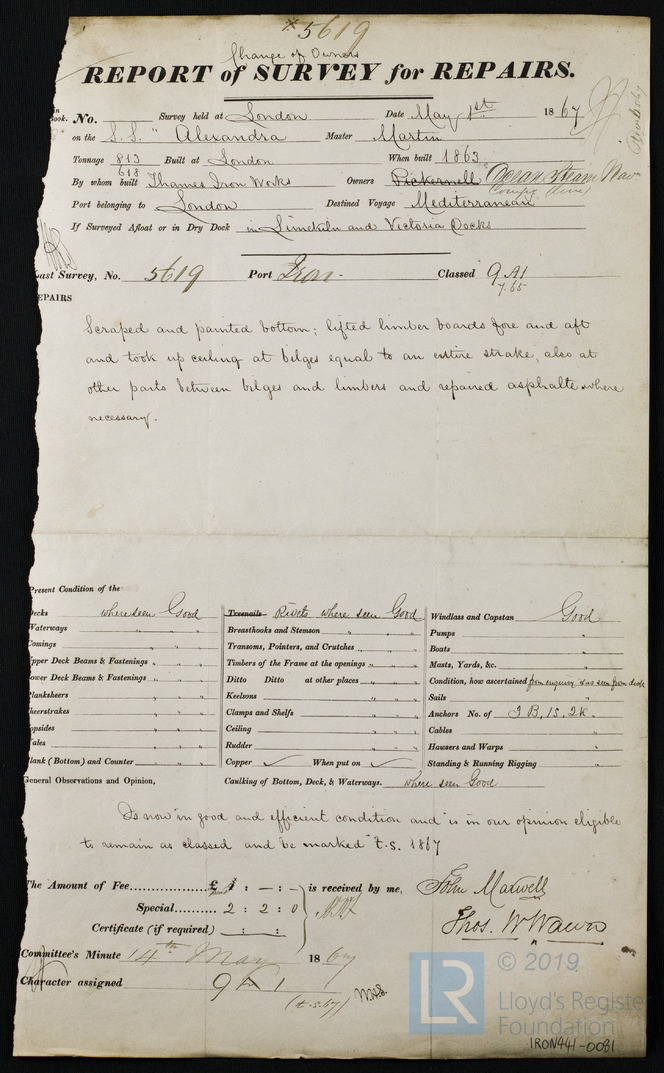 * 5619
Change of Owners
REPORT of SURVEY for REPAIRS.
in Book. No. Survey held at London Date May 1st 1867
on the S.S. " Alexandra Master Martin
Tonnage 813 Built at London When built 1863
618
By whom built Thames Iron Works Owners Pickernell Ocean Steam Nav
Compy
Port belonging to London Destined Voyage Mediterranean
If Surveyed Afloat or in Dry Dock in Limekiln and Victoria Docks
Last Survey, No. 5619 Port Iron Classed 9 A1
7.65
REPAIRS
Scraped and painted bottom; lifted limber boards fore and aft
and took up ceiling at bilges equal to an entire strake, also at
other parts between bilges and limbers and repaired asphalte where
necessary.
Present Condition of the
Decks where seen Good Treenails Rivets where seen Good Windlass and Capstan Good
Waterways " " " Breasthooks and Stemson " " " Pumps "
Comings " " " Transoms, Pointers, and Crutches " " " Boats "
Upper Deck Beams & Fastenings " " " Timbers of the Frame at the openings " " " Masts, Yards, &c. "
Lower Deck Beams & Fastenings " " " Ditto Ditto at other places " " " Condition, how ascertained from enquiry & as seen from deck
Planksheers " " " Keelsons " " " Sails "
Sheerstrakes " " " Clamps and Shelfs " " " Anchors No. of 3 B, 1 S, 2 K.
Topsides " " " Ceiling " " " Cables "
Wales " " " Rudder " " " Hawsers and Warps "
Plank (Bottom) and Counter " " " Copper ✓ When put on ✓ Standing & Running Rigging "
General Observations and Opinion, Caulking of Bottom, Deck, & Waterways. where seen Good
Is now in good and efficient condition and is in our opinion eligible
to remain as classed and be marked t.s. 1867
The Amount of Fee £ 1 : — : — is received by me, John Maxwell
Special 2 : 2 : 0
Certificate (if required) : : Thos. W Wawn
Committee's Minute 14th May 1867
Character assigned 9 A 1
(t.s.67) W.A.S.
LR © 2019
Lloyd's Register
Foundation
IRON441-0081